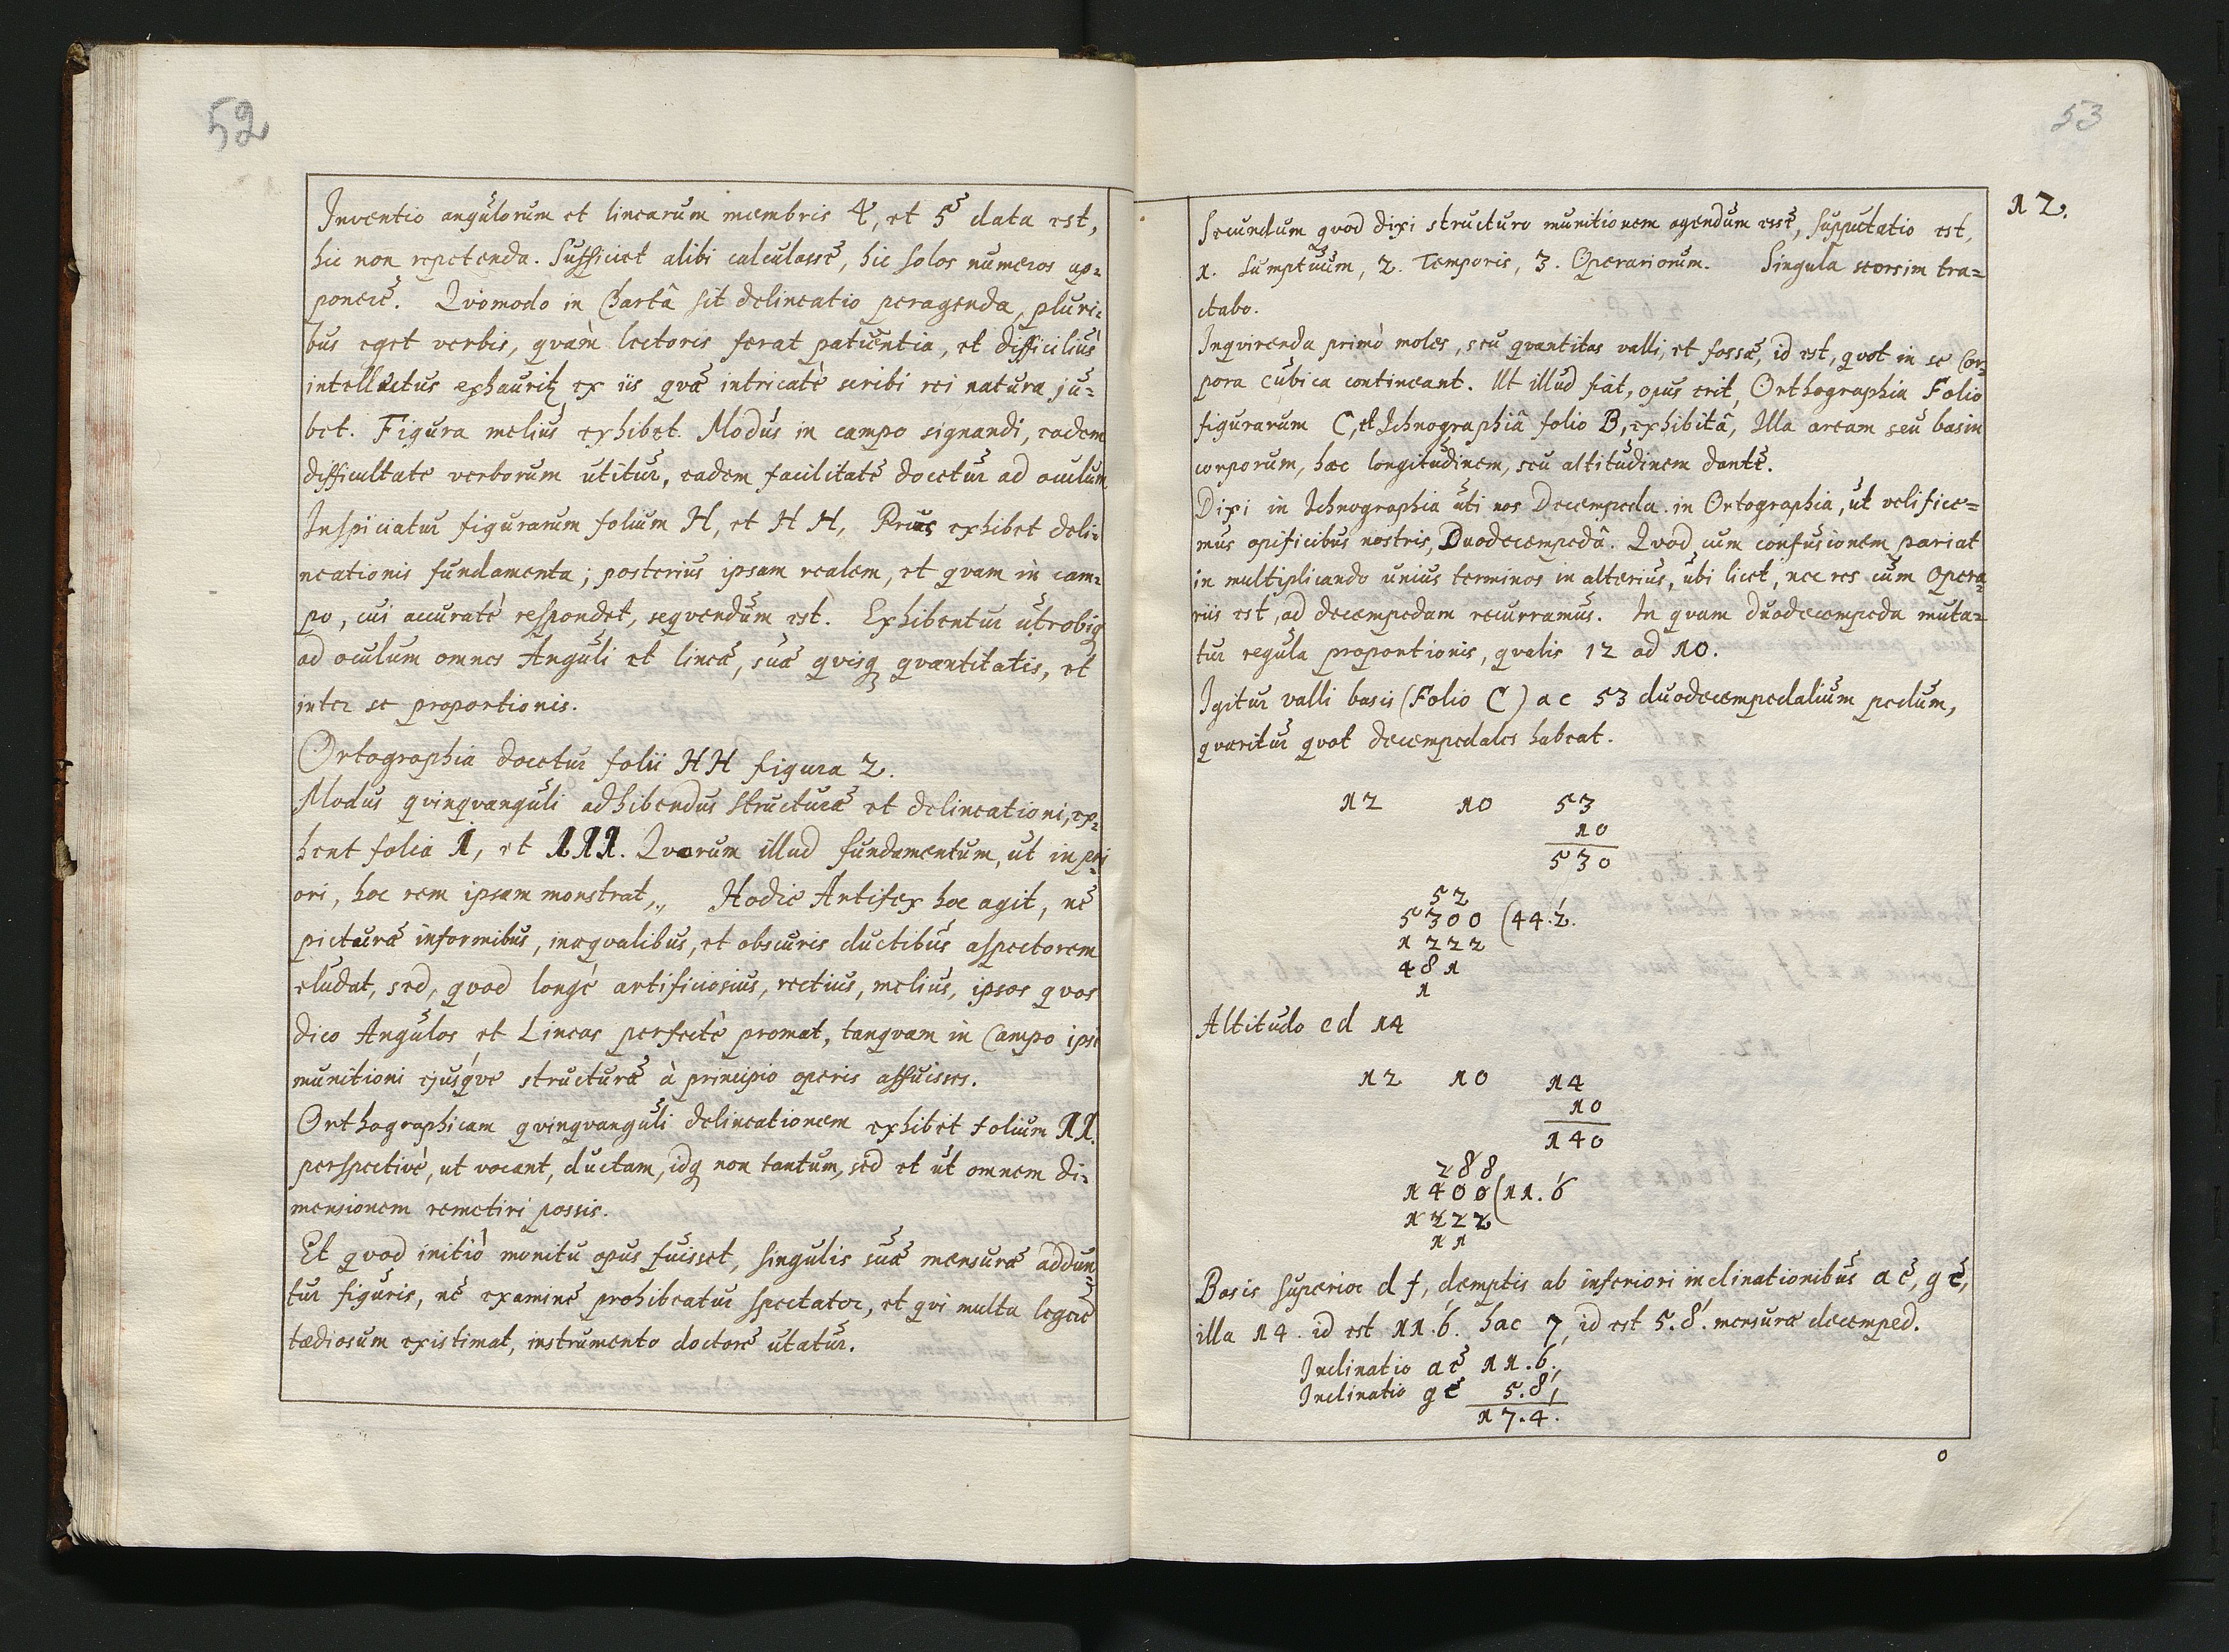 52
Inventio angulorum et linearum membris 4, et 5 data est,
hic non repetenda. Sufficiet alibi calculasse, hic solos numeros ap=
ponere. Qvomodo in Chartâ sit delineatio peragenda, pluri=
bus eget verbis, qvàm lectoris ferat patientia, et difficilius
intellectus exhaurit ex iis qvæ intricatè scribi rei natura ju=
bet. Figura melius exhibet. Modus in campo signandi, eadem
difficultate verborum utitur, eadem facilitate docetur ad oculum
Inspiciatur figurarum folium H, et H H, Prius exhibet deli=
neationis fundamenta; posterius ipsam realem, et qvam in cam=
po, cui accuratè respondet, seqvendum est. Exhibentur utrobiq
ad oculum omnes Anguli et lineæ, suæ qvisq qvantitatis, et
inter se proportionis.
Ortographia docetur folii HH figura 2.
Modus qvinqvanguli adhibendus structuræ et delineationi, ex=
hent folia I, et III. Qvorum illud fundamentum, ut in pri
ori, hoc rem ipsam monstrat,., Hodie Artifex hoc agit, ne
picturæ informibus, inæqvalibus, et obscuris ductibus aspectorem
eludat, sed, qvod longè artificiosius, rectius, melius, ipsos qvos
dico Angulos et Lineas perfectè promat, tanqvam in Campo ipsi
munitioni ejusqve structuræ à principio operis affuisses.
Orthographicam qvinqvanguli delineationem exhibet folium II.
perspectivè, ut vocant, ductam, idq non tantum, sed et ut omnem di=
mensionem remetiri possis.
Et qvod initiò monitu opus fuisset, singulis suæ mensuræ addun
tur figuris, ne examine prohibeatur spectator, et qvi multa legere
tædiosum existimat, instrumento doctore utatur.
53
12.
Secundum qvod dixi structuro munitionem agendum esse, supputatio est,
1. Sumptuum, 2. Temporis, 3. Operariorum. Singula seorsim tra=
ctabo.
Inqvirenda primò moles, seu qvantitas valli, et fossæ, id est, qvot in se Cor=
pora cubica contineant. Ut illud fiat, opus erit, Orthographia Folio
figurarum C, et Ichnographiâ folio B, exhibitâ, Illa aream seu basin
corporum, hæc longitudinem, seu altitudinem dante.
Dixi in Ichnographia uti nos Decempeda. in Ortographia, ut velifice=
mus opificibus nostris, Duodecempedâ. Qvod cum confusionem pariat
in multiplicando unius terminos in alterius, ubi licet, nec res cum Opera=
riis est, ad decempedam recurramus. In qvam duodecempeda muta=
tur regula proportionis, qvalis 12 ad 10.
Igitur valli basis (Folio C) a c 53 duodecempedalium pedum,
qværitur qvot decempedales habeat.
12 10 53
10
530
52
5300 (44.2.
1222
481
1
Altitudo ed 14
12 10 14
10
140
288
1400 (11.6
1222
11
Basis superior d f, demptis ab inferiori inclinationibus a e, g c,
illa 14. id est 11.6. hæc 7, id est 5.8. mensuræ decemped.
Inclinatio ae 11.6.
Inclinatio gc 5.8,
17.4.
o